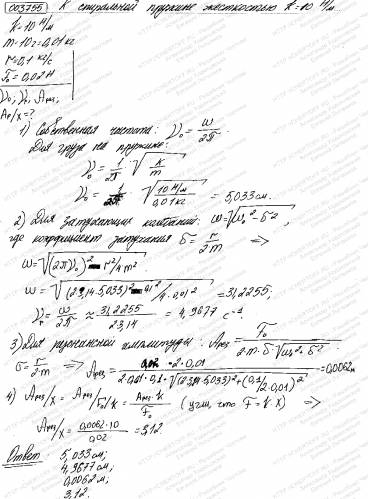 003755 К спиральной пружине жесткостью k=10 Н/м
k=10 Н/м
m=10г=0,01 кг
r=0,1 кг/с
F₀=0,02Н
ν₀, νr, Aрез,
Aр/x=?
1) Собственная частота: ν₀ = ω/2π.
Для груза на пружине:
ν₀ = 1/2π · √(k/m)
ν₀ = 1/2π · √(10 Н/м / 0,01 кг) = 5,033 см.
2) Для затухающих колебаний: ω=√(ω₀²-б²),
где коэффициент затухания б = r/2m =>
ω=√((2πν₀)² - r²/4m²).
ω = √((2·3,14·5,033)² - 0,1²/4·0,01²) = 31,2255,
νr = ω/2π ≈ 31,2255/2·3,14 = 4,9677 с⁻¹.
3) Для резонансной амплитуды: Aрез = F₀/2·m·б·√(ω₀²-б²)
б=r/2m => Aрез = 0,02·2·0,01/2·0,01·0,1·√((2·3,14·5,033)²+(0,1/2·0,01)²) = 0,0062м
4) Aрез/x = Aрез/F₀/k = Aрез·k/F₀ (учти, что F=k·x) =>
Aрез/x = 0,0062·10/0,02 = 3,12
Ответ: 5,033 см;
4,9677 см;
0,0062м;
3,12.